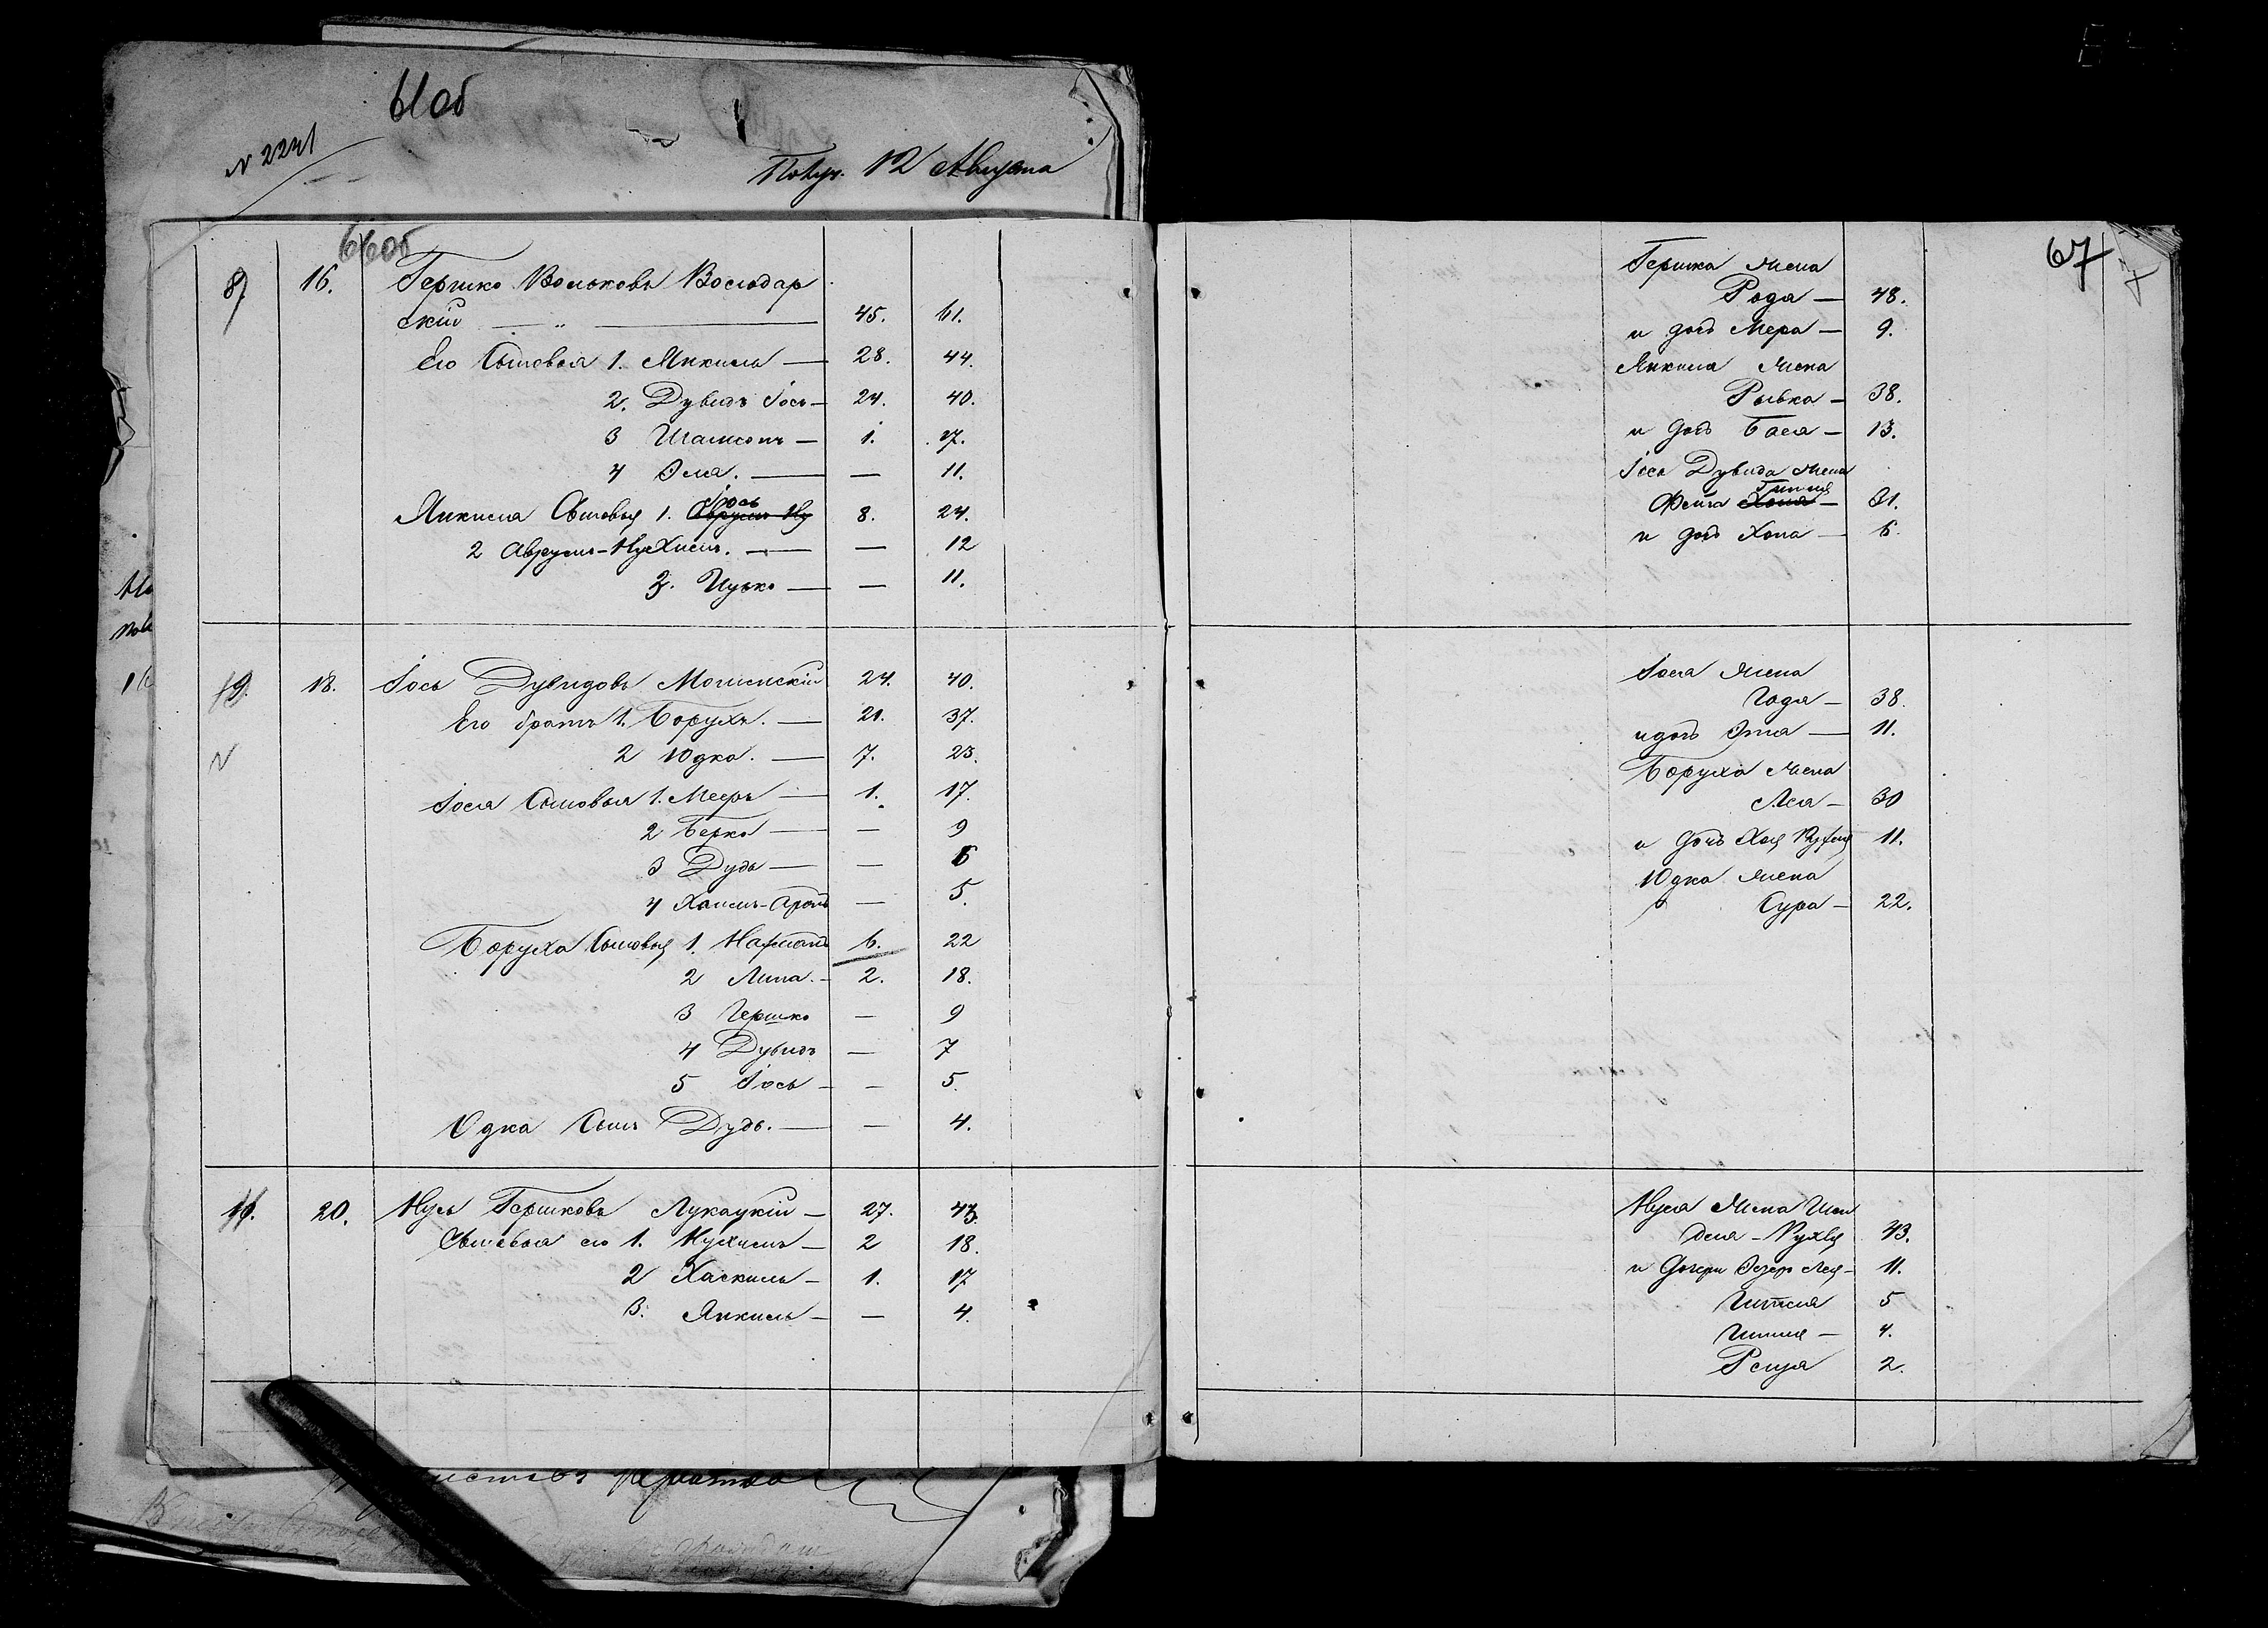 61об
N 2271
Получ. 12 Августа
66об
8, 16. Гершко Вольковъ Володар
скій — „ — 45. 61.
Его Сыновья 1. Янкиль — 28. 44.
2. Дувидъ Iось — 24. 40.
3 Шамсонъ — 1. 17.
4 Эля. — — 11.
Янкиля Сыновья 1. Iось 8. 24.
2 Аврумъ-Нухимъ. — — 12
3. Ицько — — 11.
9. 18. Iось Дувидовъ Могилскій 24. 40.
Его братъ 1. Борухъ. — 21. 37.
2 Юдка. — 7. 23.
Iося Сыновья 1. Мееръ — 1. 17.
2 Берко — — 9
3 Дудь — — 6
4 Хаимъ-Аронъ — 5.
Боруха Сыновья 1. Нафтанъ 6. 22
2 Липа. - 2. 18.
3 Гершко — 9
4 Дувидъ — 7
5 Iось - - 5.
Юдка Сынъ Дудь. — — 4.
20. Нусь Гершковъ Лукацкій — 27. 43.
Сыновья его 1. Нухимъ — 2 18.
2 Хаскиль — 1. 17
3. Янкиль — — 4.
67
Гершка жена
Рода — 48.
и дочь Мера — 9.
Янкиля жена
Рывка — 38.
и дочь Бася — 13.
Iося Дувида жена
Фейга — 31.
и дочь Хона — 6.
Iося жена
Годя — 38.
и дочь Эта — 11.
Боруха жена
Лея — 30
и дочь Хая 11.
Юдка жена
Сура — 22.
Нуся жена Шен
деля - Рухля 43.
и дочери Лея - 11.
5
4.
Рейзя 2.